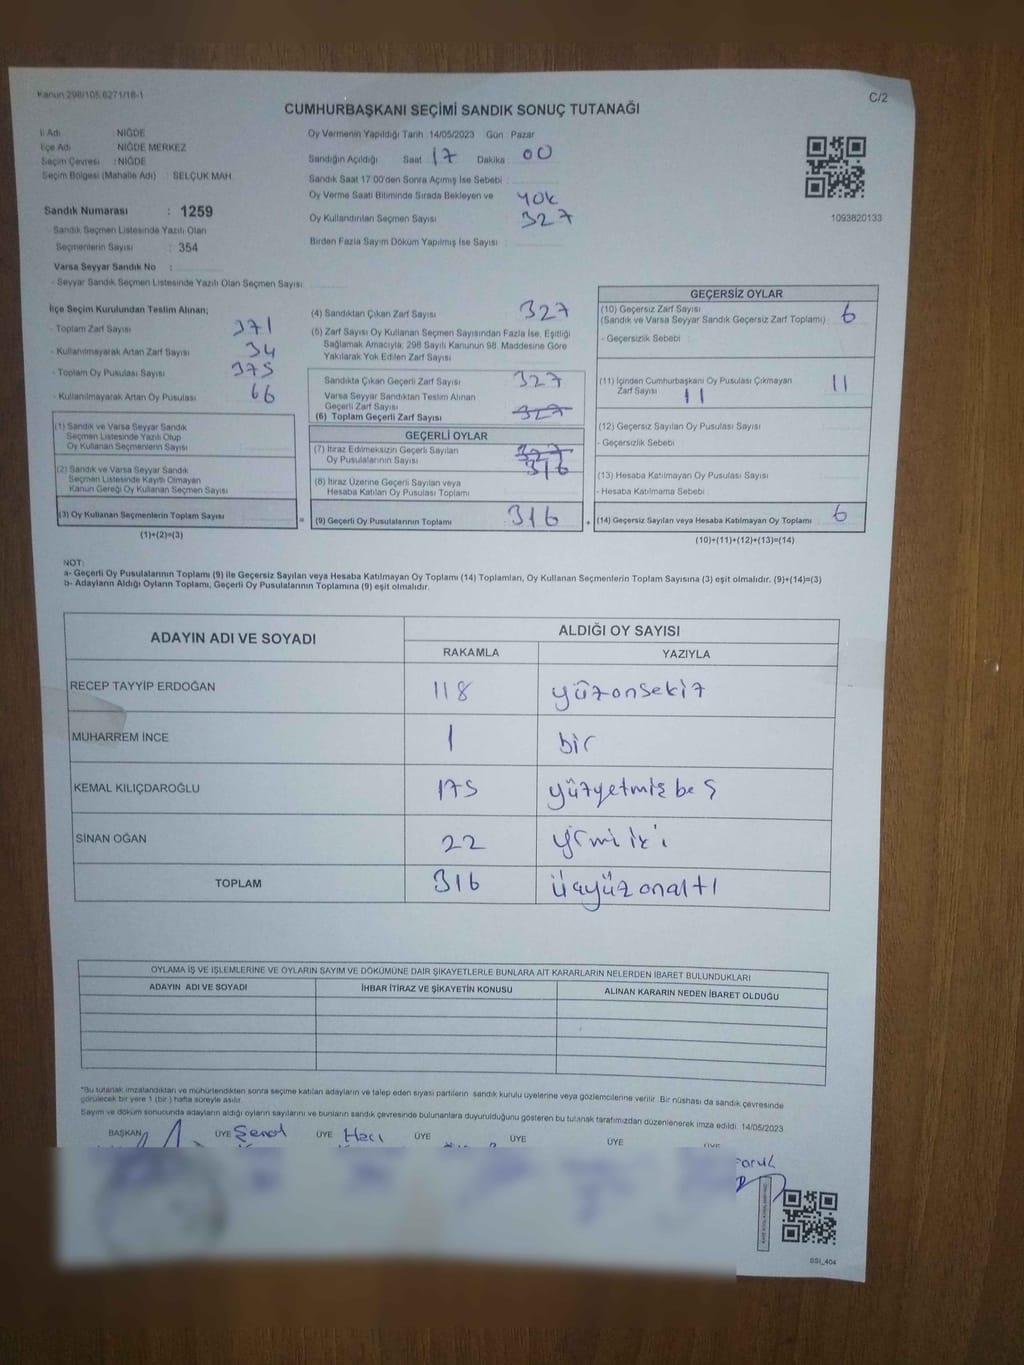 Kanun 298/105,6271/18-1
C/2
CUMHURBAŞKANI SEÇİMİ SANDIK SONUÇ TUTANAĞI
İl Adı : NİĞDE
İlçe Adı : NİĞDE MERKEZ
Seçim Çevresi : NİĞDE
Seçim Bölgesi (Mahalle Adı) : SELÇUK MAH.
Sandık Numarası : 1259
Sandık Seçmen Listesinde Yazılı Olan
Seçmenlerin Sayısı : 354
Varsa Seyyar Sandık No :
- Seyyar Sandık Seçmen Listesinde Yazılı Olan Seçmen Sayısı
Oy Vermenin Yapıldığı Tarih 14/05/2023 Gün : Pazar
Sandığın Açıldığı Saat 17 Dakika 00
Sandık Saat 17:00'den Sonra Açımış İse Sebebi :
Oy Verme Saati Bitiminde Sırada Bekleyen ve yok
Oy Kullandırılan Seçmen Sayısı 327
Birden Fazla Sayım Döküm Yapılmış İse Sayısı
1093820133
İlçe Seçim Kurulundan Teslim Alınan;
- Toplam Zarf Sayısı 371
- Kullanılmayarak Artan Zarf Sayısı 34
- Toplam Oy Pusulası Sayısı 375
- Kullanılmayarak Artan Oy Pusulası 66
(1) Sandık ve Varsa Seyyar Sandık
Seçmen Listesinde Yazılı Olup
Oy Kullanan Seçmenlerin Sayısı
(2) Sandık ve Varsa Seyyar Sandık
Seçmen Listesinde Kayıtlı Olmayan
Kanun Gereği Oy Kullanan Seçmen Sayısı
(3) Oy Kullanan Seçmenlerin Toplam Sayısı
(1)+(2)=(3)
=
(4) Sandıktan Çıkan Zarf Sayısı 327
(5) Zarf Sayısı Oy Kullanan Seçmen Sayısından Fazla İse, Eşitliği
Sağlamak Amacıyla, 298 Sayılı Kanunun 98. Maddesine Göre
Yakılarak Yok Edilen Zarf Sayısı
Sandıkta Çıkan Geçerli Zarf Sayısı 327
Varsa Seyyar Sandıktan Teslim Alınan
Geçerli Zarf Sayısı
(6) Toplam Geçerli Zarf Sayısı 327
GEÇERLİ OYLAR
(7) İtiraz Edilmeksizin Geçerli Sayılan
Oy Pusulalarının Sayısı 327 316
(8) İtiraz Üzerine Geçerli Sayılan veya
Hesaba Katılan Oy Pusulası Toplamı
(9) Geçerli Oy Pusulalarının Toplamı 316
+
GEÇERSİZ OYLAR
(10) Geçersiz Zarf Sayısı 6
(Sandık ve Varsa Seyyar Sandık Geçersiz Zarf Toplamı)
- Geçersizlik Sebebi :
(11) İçinden Cumhurbaşkanı Oy Pusulası Çıkmayan 11
Zarf Sayısı 11
(12) Geçersiz Sayılan Oy Pusulası Sayısı
- Geçersizlik Sebebi :
(13) Hesaba Katılmayan Oy Pusulası Sayısı
- Hesaba Katılmama Sebebi :
(14) Geçersiz Sayılan veya Hesaba Katılmayan Oy Toplamı 6
(10)+(11)+(12)+(13)=(14)
NOT:
a- Geçerli Oy Pusulalarının Toplamı (9) ile Geçersiz Sayılan veya Hesaba Katılmayan Oy Toplamı (14) Toplamları, Oy Kullanan Seçmenlerin Toplam Sayısına (3) eşit olmalıdır. (9)+(14)=(3)
b- Adayların Aldığı Oyların Toplamı, Geçerli Oy Pusulalarının Toplamına (9) eşit olmalıdır.
ADAYIN ADI VE SOYADI
ALDIĞI OY SAYISI
RAKAMLA YAZIYLA
RECEP TAYYİP ERDOĞAN 118 yüzonsekiz
MUHARREM İNCE 1 bir
KEMAL KILIÇDAROĞLU 175 yüzyetmişbeş
SİNAN OĞAN 22 yirmi iki
TOPLAM 316 üçyüzonaltı
OYLAMA İŞ VE İŞLEMLERİNE VE OYLARIN SAYIM VE DÖKÜMÜNE DAİR ŞİKAYETLERLE BUNLARA AİT KARARLARIN NELERDEN İBARET BULUNDUKLARI
ADAYIN ADI VE SOYADI İHBAR İTİRAZ VE ŞİKAYETİN KONUSU ALINAN KARARIN NEDEN İBARET OLDUĞU
*Bu tutanak imzalandıktan ve mühürlendikten sonra seçime katılan adayların ve talep eden siyasi partilerin sandık kurulu üyelerine veya gözlemcilerine verilir. Bir nüshası da sandık çevresinde
görülecek bir yere 1 (bir) hafta süreyle asılır.
Sayım ve döküm sonucunda adayların aldığı oyların sayılarını ve bunların sandık çevresinde bulunanlara duyurulduğunu gösteren bu tutanak tarafımızdan düzenlenerek imza edildi. 14/05/2023
BAŞKAN ÜYE Şenol ÜYE Hacı ÜYE ÜYE ÜYE ÜYE
SSI_404